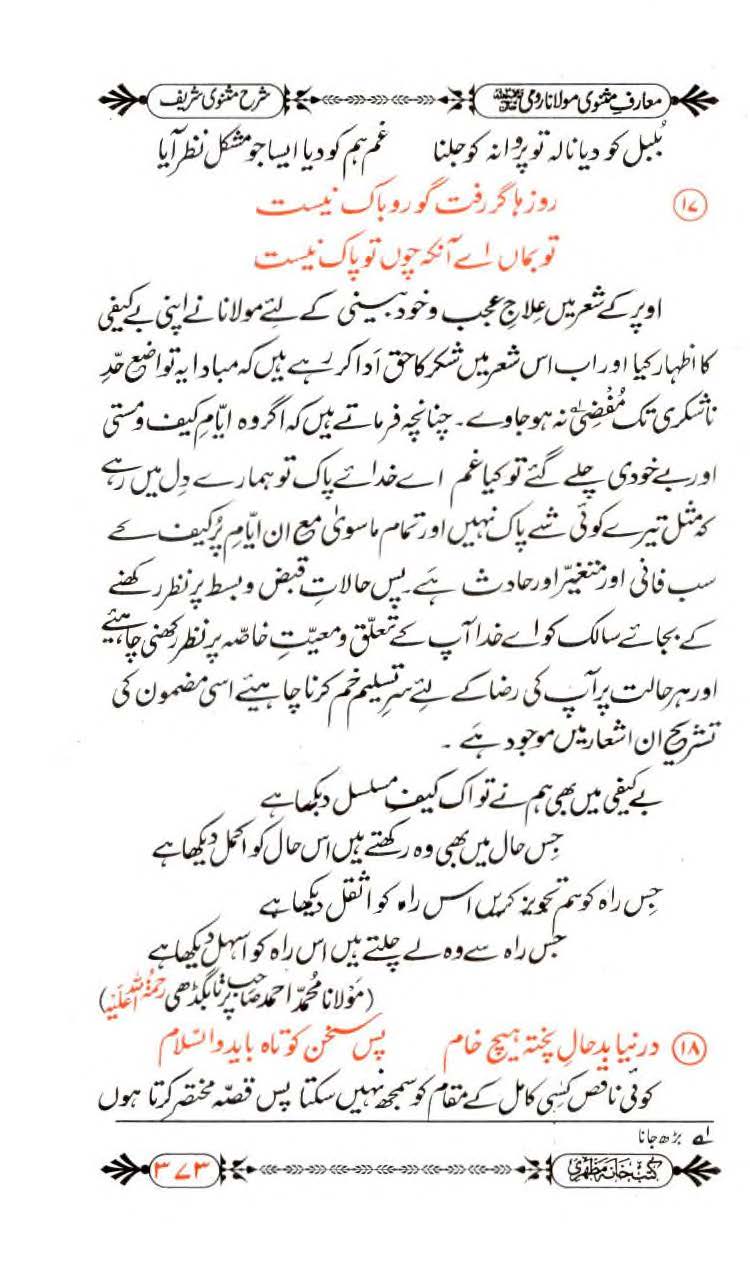 معارفِ مثنوی مولانا رومی رحمۃ اللہ علیہ
شرح مثنوی شریف
بلبل کو دیا نالہ تو پروانہ کو جلنا غم ہم کو دیا ایسا جو مشکل نظر آیا
۱۷ روزہا گر رفت گو رو باک نیست
تو بماں اے آنکہ چوں تو پاک نیست
اوپر کے شعر میں علاجِ عجب و خودبینی کے لئے مولانا نے اپنی بے کیفی
کا اظہار کیا اور اب اس شعر میں شکر کا حق ادا کر رہے ہیں کہ مبادا یہ تواضع حدِّ
ناشکری تک مُفْضِیؔ لہ نہ ہو جاوے۔ چنانچہ فرماتے ہیں کہ اگر وہ ایّامِ کیف و مستی
اور بے خودی چلے گئے تو کیا غم اے خدائے پاک تو ہمارے دِل میں رہے
کہ مثل تیرے کوئی شے پاک نہیں اور تمام ماسویٰ مع ان ایّامِ پُر کیف کے
سب فانی اور متغیّر اور حادث ہے۔ پس حالاتِ قبض و بسط پر نظر رکھنے
کے بجائے سالک کو اے خدا آپ کے تعلّق و معیّتِ خاصّہ پر نظر رکھنی چاہیئے
اور ہر حالت پر آپ کی رضا کے لئے سرِ تسلیم خم کرنا چاہیئے اسی مضمون کی
تشریح ان اشعار میں موجود ہے ۔
بے کیفی میں بھی ہم نے تو اک کیفِ مسلسل دیکھا ہے
جِس حال میں بھی وہ رکھتے ہیں اس حال کو اکمل دیکھا ہے
جِس راہ کو ہم تجویز کریں اس راہ کو اثقل دیکھا ہے
جس راہ سے وہ لے چلتے ہیں اس راہ کو اسہل دیکھا ہے
(مولانا محمّد احمد صاحب پرتابگڈھی رحمۃ اللہ علیہ)
۱۸ درنیابد حالِ پختہ ہیچ خام پس سخن کوتاہ باید والسّلام
کوئی ناقص کسی کامل کے مقام کو سمجھ نہیں سکتا پس قصّہ مختصر کرتا ہوں
لہ بڑھ جانا
کتب خانہ مظہری
۳۷۳